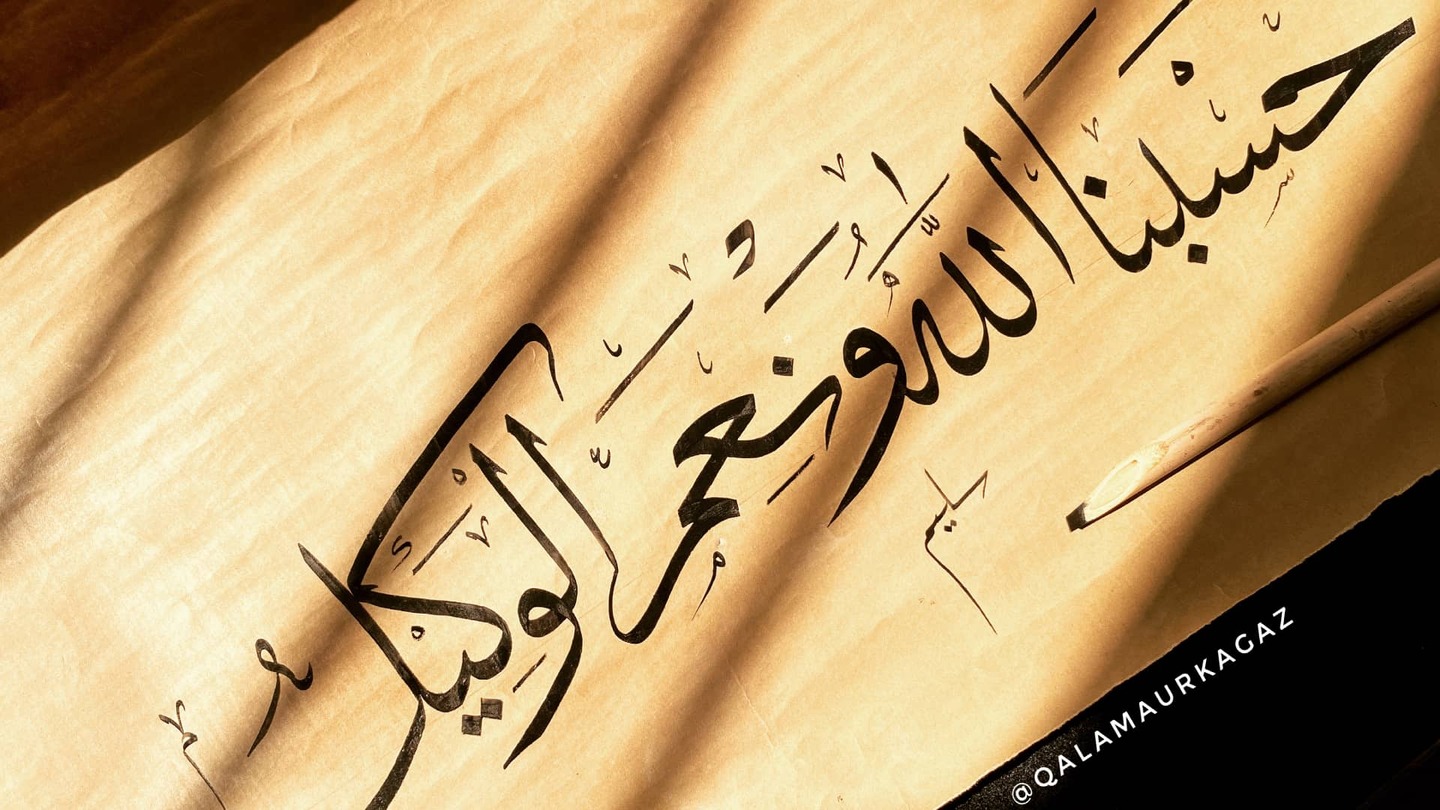 حَسْبُنَا اللَّهُ وَنِعْمَ الْوَكِيلُ
سلیم
@QALAMAURKAGAZ